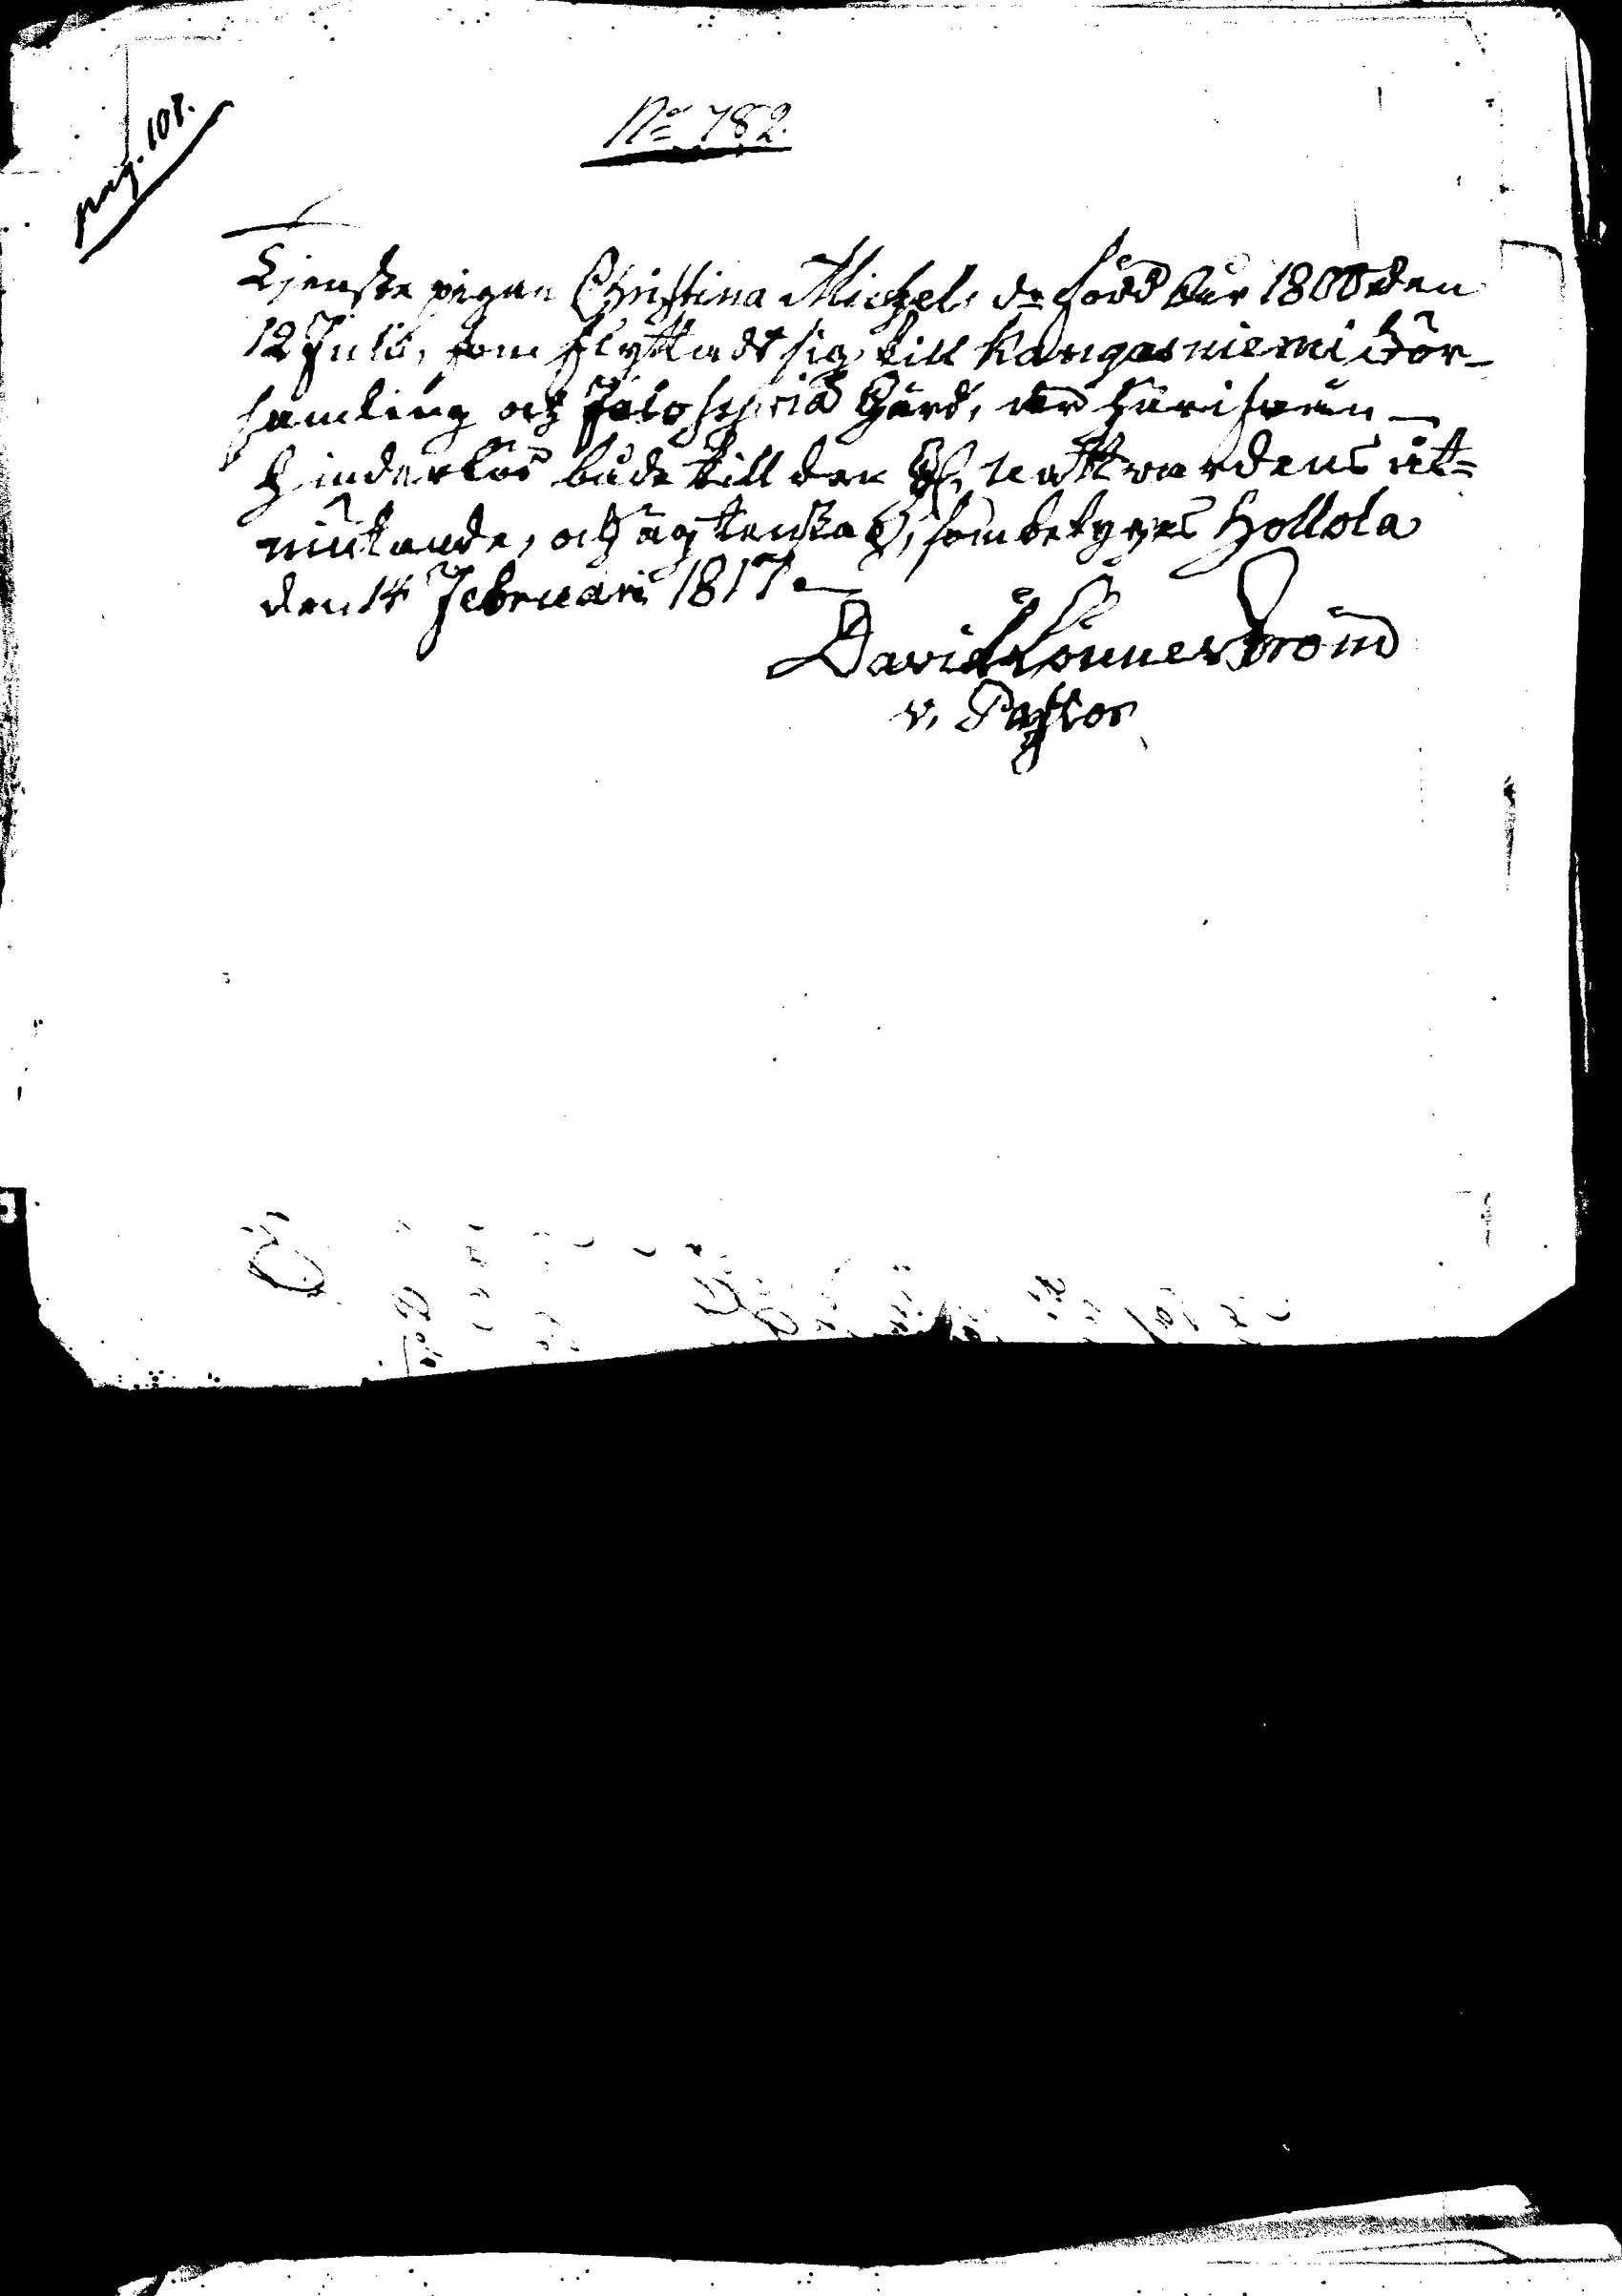 pag. 107.
No 782.
Tjenste pigan Christina Michels dr född År 1800 den
12 Julii, som flyttadt sig till Kangasniemi För-
samling och gård, är härifrån
hinderlös både till den H. nattwardens åt-
niutande, och ägtenskap, som betygas Hollola
den 14 Februari 1817
David Lönneström
v. Pastor